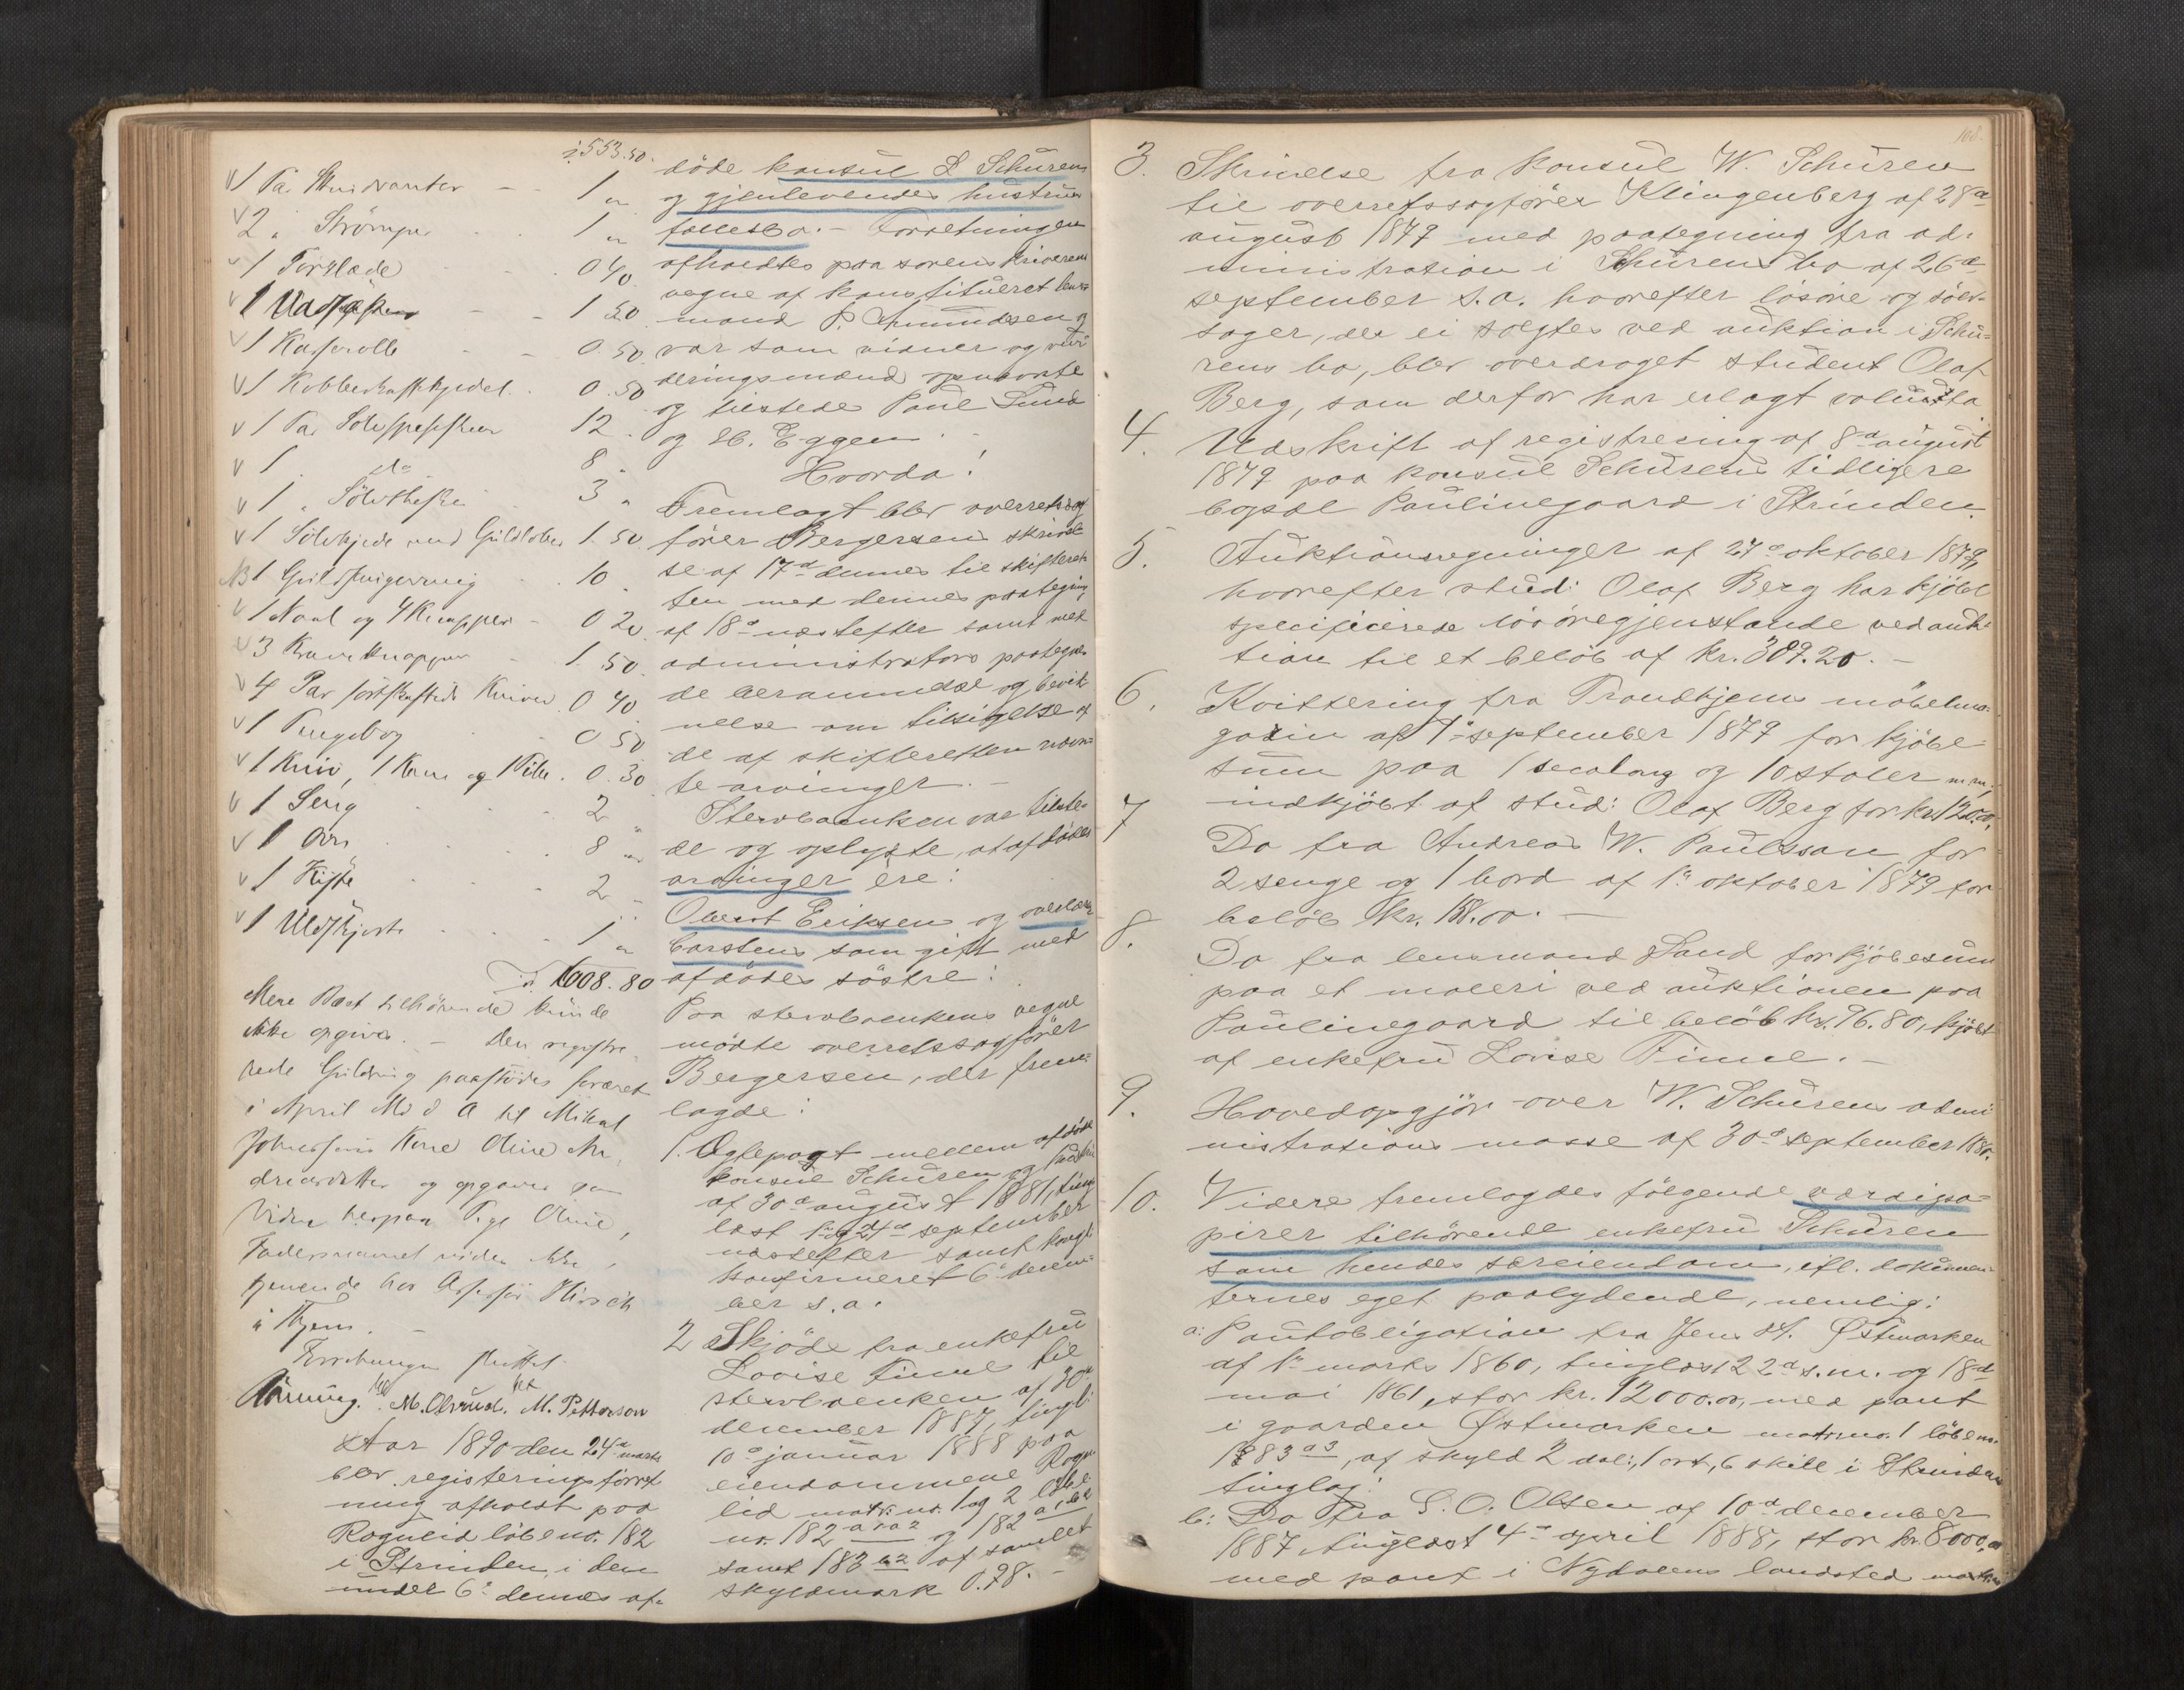 553.50.
1 Par 1 "
2 " Strömper 1 "
1 Forklæde 0 40
1 1 50
1 Kasserolle 0.50
1 Kobberkaffekjedel 0.50
1 Par 12 "
1 " do 8 "
1 " Sölvskee 3 "
1 Sölvkjede med Guldlaas 1.50
1 Guldfingerring 10 "
1 Naal og 4 Knapper 0 20
3 Knapper 1.50
4 Par Knive 0 40
1 Pungebog 0 50
1 Kniv, 1 og 1 0.30
1 Seng 2 "
1 Ovn 8 "
1 Kiste 2 "
1 1 "
608.80
Mere Boet tilhørende kunde
ikke opgives. – Den registre-
rede Guldring paastodes foræret
i April Md d A til Mikal
Johnsens Kone Oline An-
dreasdatter og opgaves som
Vidne herpaa Pige Oline,
Fadersnavnet vides ikke,
tjenende hos Hirsch
i Thjem. –
Forretningen sluttet.
M. Olsrud. M. Pettersen
Aar 1890 den 24de marts
blev registreringsforret-
ning afholdt paa
Rognlid löbeno. 182
i Strinden i den
under 6te dennes af-
döde konsul L Schürens
og gjenlevendes hustrus
fællesbo. – Forretningen
afholdtes paa sorenskriverens
vegne af konstitueret lens-
mand P. Amundsen og
var som vidner og vur-
deringsmænd opnævnte
og tilstede Paul Lund
og H. Eggen.
Hvorda!
Fremlagt blev overretssag-
förer Bergersens skrivel-
se af 17de dennes til skifteret-
ten med dennes paategning
af 18de næstefter samt med
administrators paategne-
de berammelse og bevid-
nelse om tilsigelse af
de af skifteretten nævn-
te arvinger. –
Stervboenken var tilste-
de og oplyste, at afdödes
arvinger ere:
Obert Eriksen og overlærer
Carstens som gift med
afdödes söstre:
Paa stervboenkens vegne
mödte overretssagförer
Bergersen, der frem-
lagde:
1. Egtepagt mellem afdöde
konsul Schüren og hustru
af 30de august 1881, ting-
læst 1ste og 24de september
næstefter samt kongl.
konfirmeret 6te decem-
ber s.a.
2 Skjöde fra enkefru
Lovise Finne til
stervboenken af 30te
december 1887, tingl.
10de januar 1888 paa
eiendommene Rogn-
lid matr. no. 1 og 2 löbe-
no. 182 og 182
samt 183 af samlet
skyldmark 0.98. –
108.
3. Skrivelse fra konsul W. Schüren
til overretssagförer Klingenberg af 28de
august 1879 med paategning fra ad-
ministration i Schürens bo af 26de
september s.a. hvorefter lösöre og sölv-
sager, der ei solgtes ved auktion i Schü-
rens bo, blev overdraget student Olaf
Berg, som derfor har erlagt valuta
4. Udskrift af registrering af 8de august
1879 paa konsul Schürens tidligere
bopæl Paulinegaard i Strinden.
5. Auktionsregninger af 27de oktober 1879,
hvorefter stud: Olaf Berg har kjöbt
specificerede lösöregjenstande ved auk-
tion til et belöb af kr. 309.20. –
6. Kvittering fra Trondhjems möbelma-
gazin af 1ste september 1879 for kjöbe-
sum paa 1 og 10 stoler m.m.
indkjöbt af stud: Olaf Berg for kr. 120.00.
7 Do fra Andreas W. Paulsson for
2 senge og 1 bord af 1ste oktober 1879 for
belöb kr. 158.00. –
8. Do fra lensmand Sand for kjöbesum
paa et maleri ved auktionen paa
Paulinegaard til belöb kr. 96.80, kjöbt
af enkefru Lovise Finne. –
9. Hovedopgjör over W. Schürens admi-
nistrations masse af 30te september 1880.
10. Videre fremlagdes fölgende værdipa-
pirer tilhörende enkefru Schüren
som hendes særeiendom, ifl. dokumen-
ternes eget paalydende, nemlig:
a: Pantobligation fra Jens H. Østmarken
af 1ste marts 1860, tinglæst 22de s.m. og 18de
mai 1861, stor kr. 12000.00, med pant
i gaarden Østmarken matr. no. 1 löbeno.
183 a3, af skyld 2 dal:, 1 ort, 6 skill i Strindens
tinglag:
b: Do fra S. O. Olsen af 10de december
1887, tinglæst 4de april 1888, stor kr. 8000.00
med pant i Nydalens landsted matr. no.